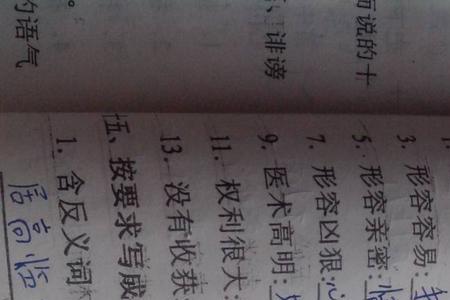 而说的十
、诽谤
的语气
3. 形容容易:
5. 形容亲密:
7. 形容凶狠:心
9. 医术高明:
11. 权利很大:
13. 没有收获:
伍、按要求写成
1. 含反义词
居高临